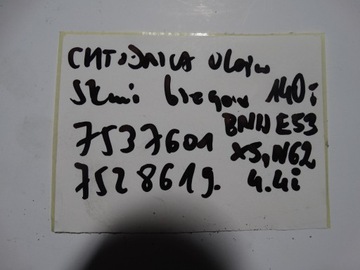 CHŁODNICA OLEJU
SKRZYNI BIEGÓW 140i
7537601 BMW E53
X5, N62
7528619. 4.4i